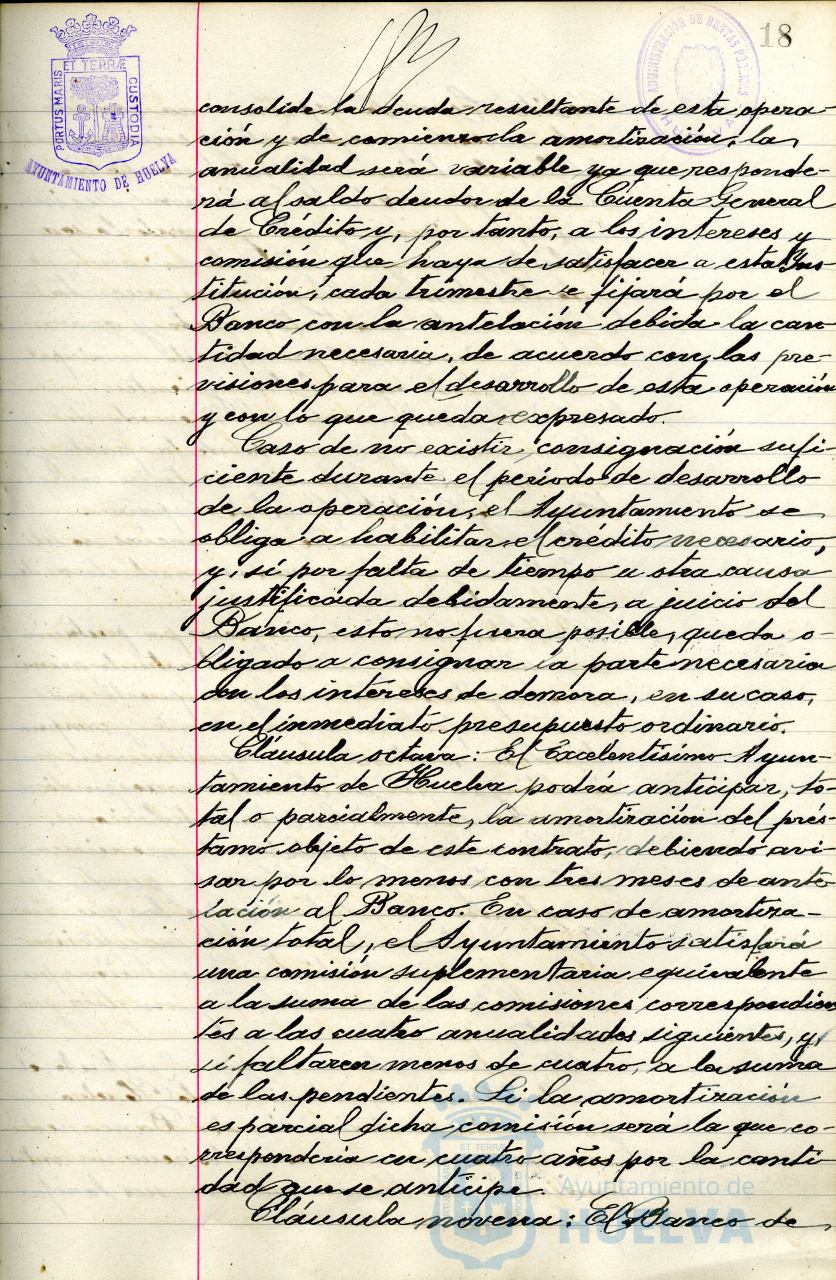 18
PORTUS MARIS ET TERRÆ CUSTODIA
AYUNTAMIENTO DE HUELVA
ADMINISTRACIÓN DE RENTAS PÚBLICAS
consolide la deuda resultante de esta opera-
ción y de comienzo la amortización, la
anualidad será variable ya que responde-
rá al saldo deudor de la Cuenta General
de Crédito y, por tanto, a los intereses y
comisión que haya de satisfacer a esta Ins-
titución; cada trimestre se fijará por el
Banco con la antelación debida la can-
tidad necesaria, de acuerdo con las pre-
visiones para el desarrollo de esta operación
y con lo que queda expresado.
Caso de no existir consignación sufi-
ciente durante el período de desarrollo
de la operación, el Ayuntamiento se
obliga a habilitar el crédito necesario,
y, si por falta de tiempo u otra causa
justificada debidamente, a juicio del
Banco, esto no fuera posible, queda o-
bligado a consignar la parte necesaria
con los intereses de demora, en su caso,
en el inmediato presupuesto ordinario.
Cláusula octava: El Excelentísimo Ayun-
tamiento de Huelva podrá anticipar, to-
tal o parcialmente, la amortización del prés-
tamo objeto de este contrato, debiendo avi-
sar por lo menos con tres meses de ante-
lación al Banco. En caso de amortiza-
ción total, el Ayuntamiento satisfará
una comisión suplementaria equivalente
a la suma de las comisiones correspondien
tes a las cuatro anualidades siguientes, y,
si faltaren menos de cuatro, a la suma
de las pendientes. Si la amortización
es parcial dicha comisión será la que co-
rrespondería en cuatro años por la canti
dad que se anticipe.
Cláusula novena: El Banco de
Ayuntamiento de
HUELVA